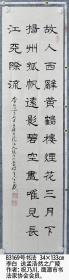 故人西辭黃鶴樓煙花三月下
揚州孤帆遠影碧空盡唯見長
江天際流
B3169号书法 34×133cm
李白 送孟浩然之广陵
作者：祝乃川，鹰潭市书
法家协会会员。